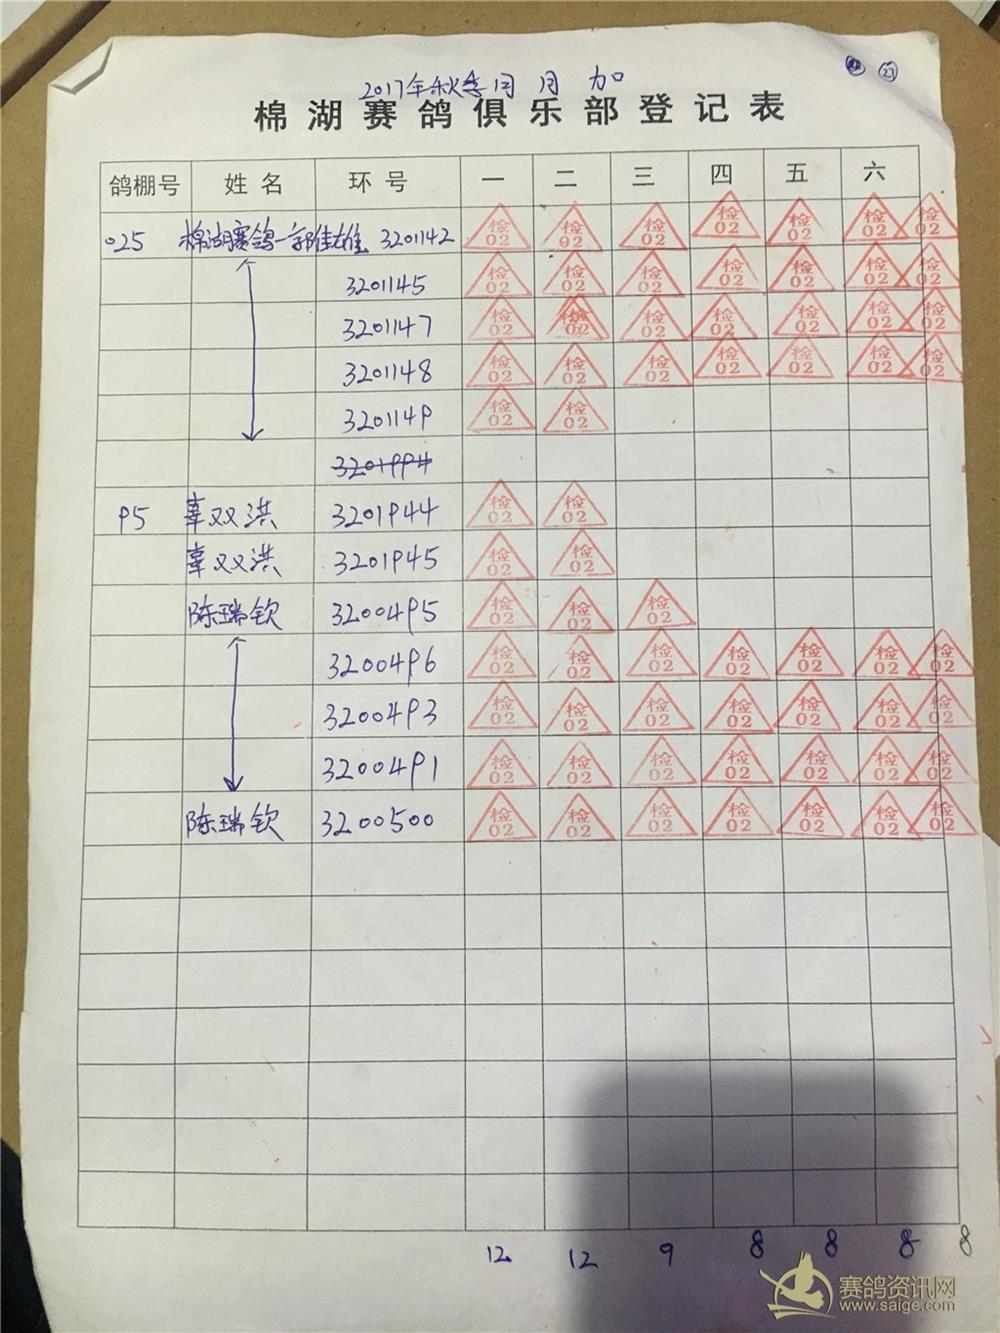 27
2017年秋季 月 加
棉湖赛鸽俱乐部登记表
鸽棚号 姓名 环号 一 二 三 四 五 六
025 棉湖赛鸽-郭佳雄 3201142 检02 检02 检02 检02 检02 检02 检02
3201145 检02 检02 检02 检02 检02 检02 检02
3201147 检02 检02 检02 检02 检02 检02 检02
3201148 检02 检02 检02 检02 检02 检02 检02
3201149 检02 检02
3201994
95 辜双洪 3201944 检02 检02
辜双洪 3201945 检02 检02
陈瑞钦 3200495 检02 检02 检02
3200496 检02 检02 检02 检02 检02 检02 检02
3200493 检02 检02 检02 检02 检02 检02 检02
3200491 检02 检02 检02 检02 检02 检02 检02
陈瑞钦 3200500 检02 检02 检02 检02 检02 检02 检02
12 12 9 8 8 8 8
赛鸽资讯网
www.saige.com